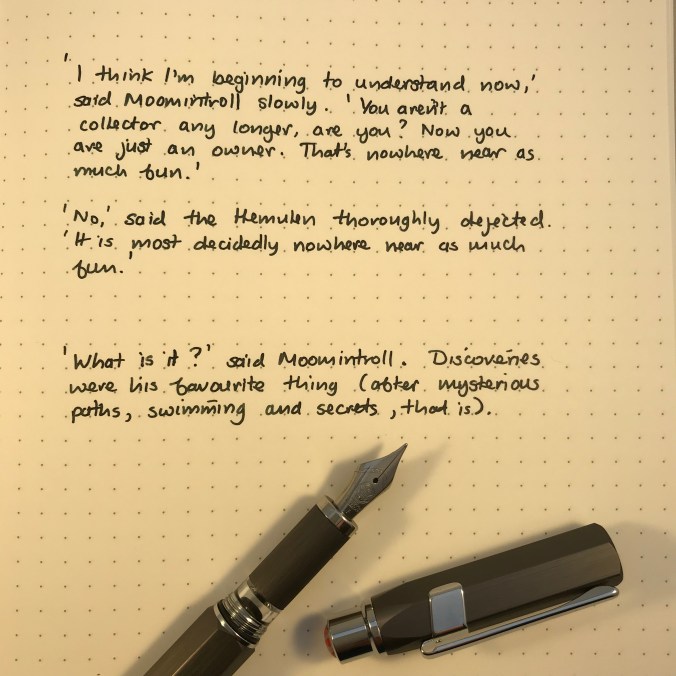 'I think I'm beginning to understand now,'
said Moomintroll slowly. 'You aren't a
collector any longer, are you? Now you
are just an owner. That's nowhere near as
much fun.'
'No,' said the Hemulen thoroughly dejected.
'It is most decidedly nowhere near as much
fun.'
'What is it?' said Moomintroll. Discoveries
were his favourite thing (after mysterious
paths, swimming and secrets, that is).